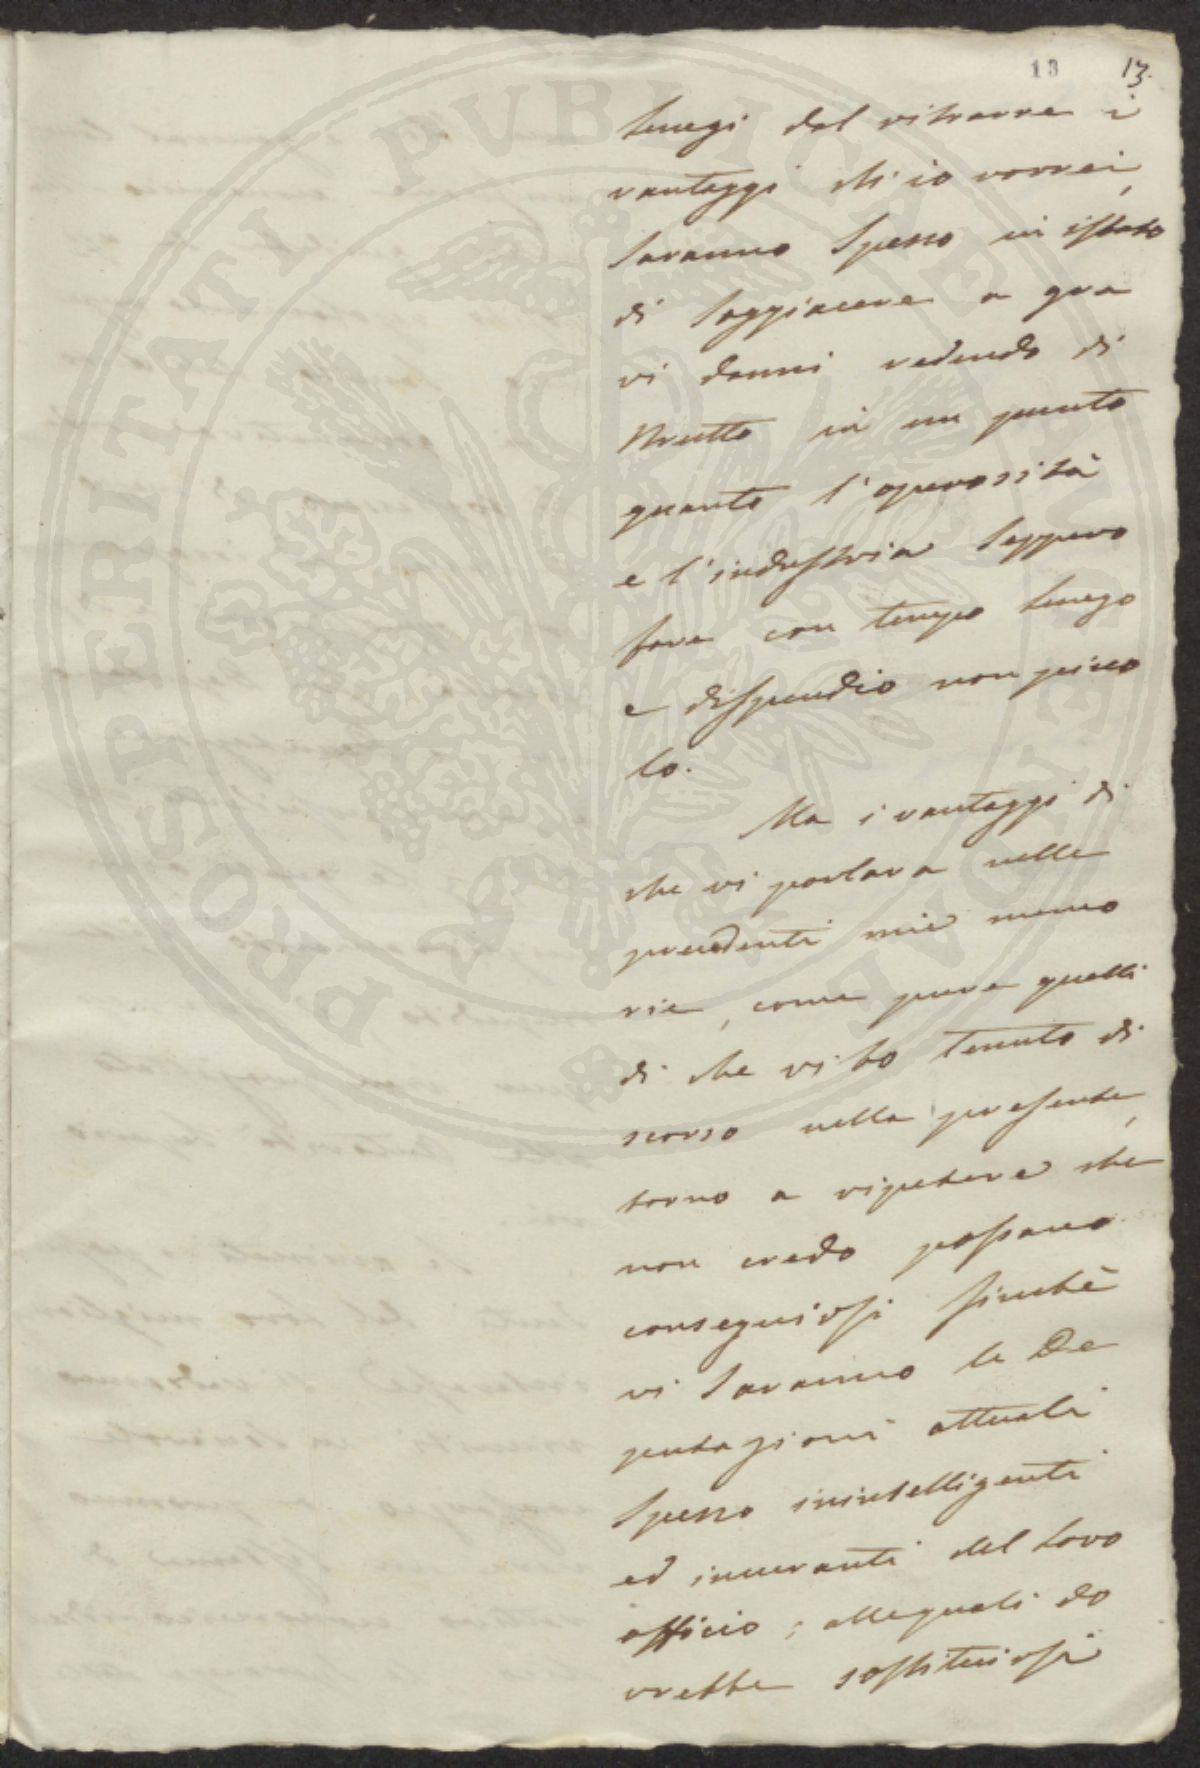 13 13.
lungi dal ritrarre i
vantaggi chi io vorrei,
saranno spesso in istato
di soggiacere a gra
vi danni vedendo di
strutto in un punto
quanto l'operosità
e l'industria seppero
fare con tempo lungo
e dispendio non picco
lo.
Ma i vantaggi di
che vi parlava nelle
precedenti mie memo
rie, come pure quelli
di che vi ho tenuto di
scorso nella presente,
torno a ripetere che
non credo possano
conseguirsi finchè
vi saranno le De
putazioni attuali
spesso inintelligenti
ed incuranti del loro
officio; alle quali do
vrebbe sostituirsi
PROSPERITATI PVBLICAE